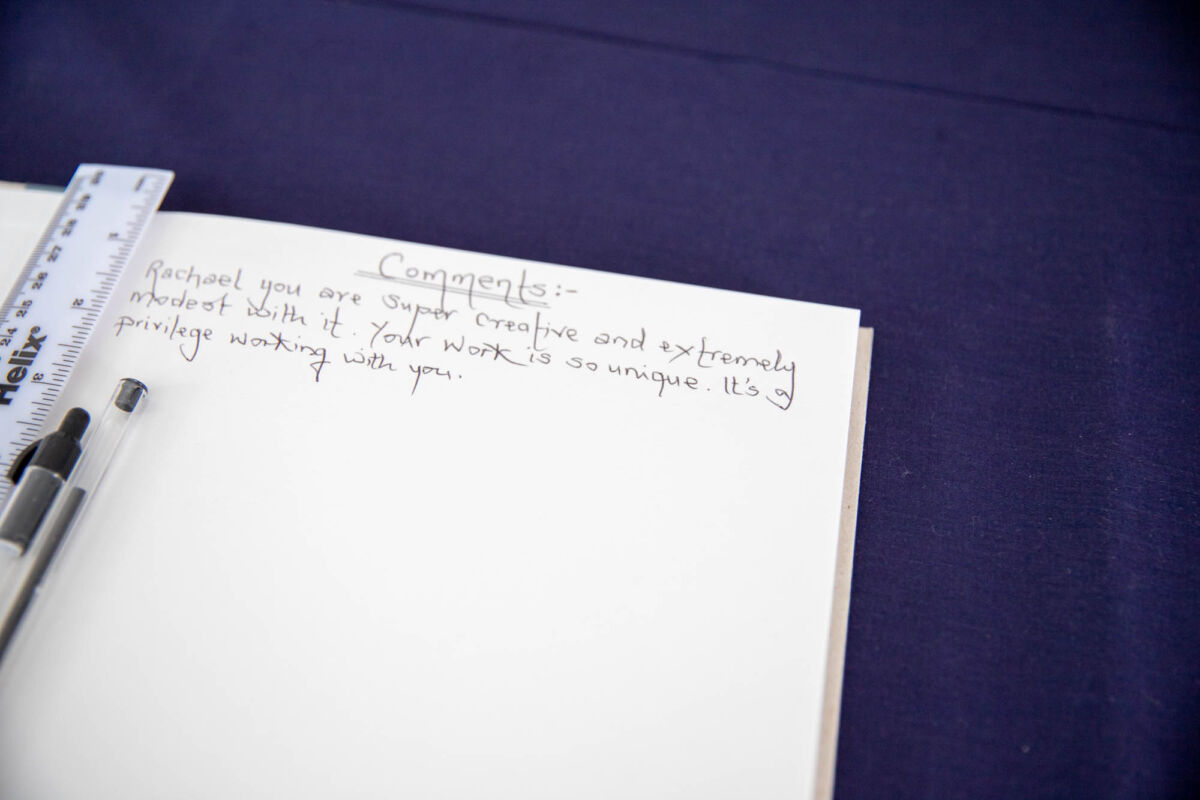 Comments:-
Rachael you are super creative and extremely
modest with it. Your work is so unique. It's a
privilege working with you.
Helix®
30
29
28
27
26
25
24
1
2
3